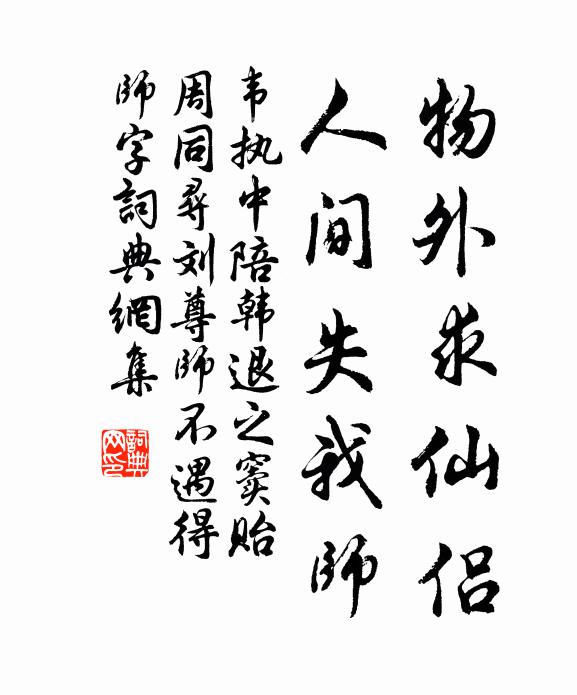 物外求仙侣
人间失我師
韦执中陪韩退之窦贻
周同尋刘尊師不遇得
師字詞典網集
詞典网印